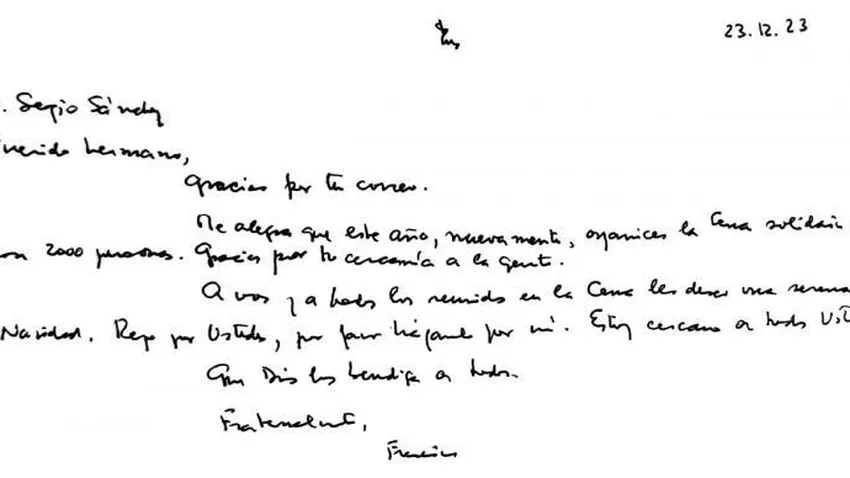 23.12.23
. Sergio Sánchez
uerido hermano,
Gracias por tu correo.
Me alegra que este año, nuevamente, organices la Cena solidari
on 2000 personas. Gracias por tu cercanía a la gente.
A vos y a todos los reunidos en la Cena les deseo una serena
Navidad. Rezo por Ustedes, por favor háganlo por mí. Estoy cercano a todos Ust
Que Dios los bendiga a todos.
Fraternalmente,
Francisco